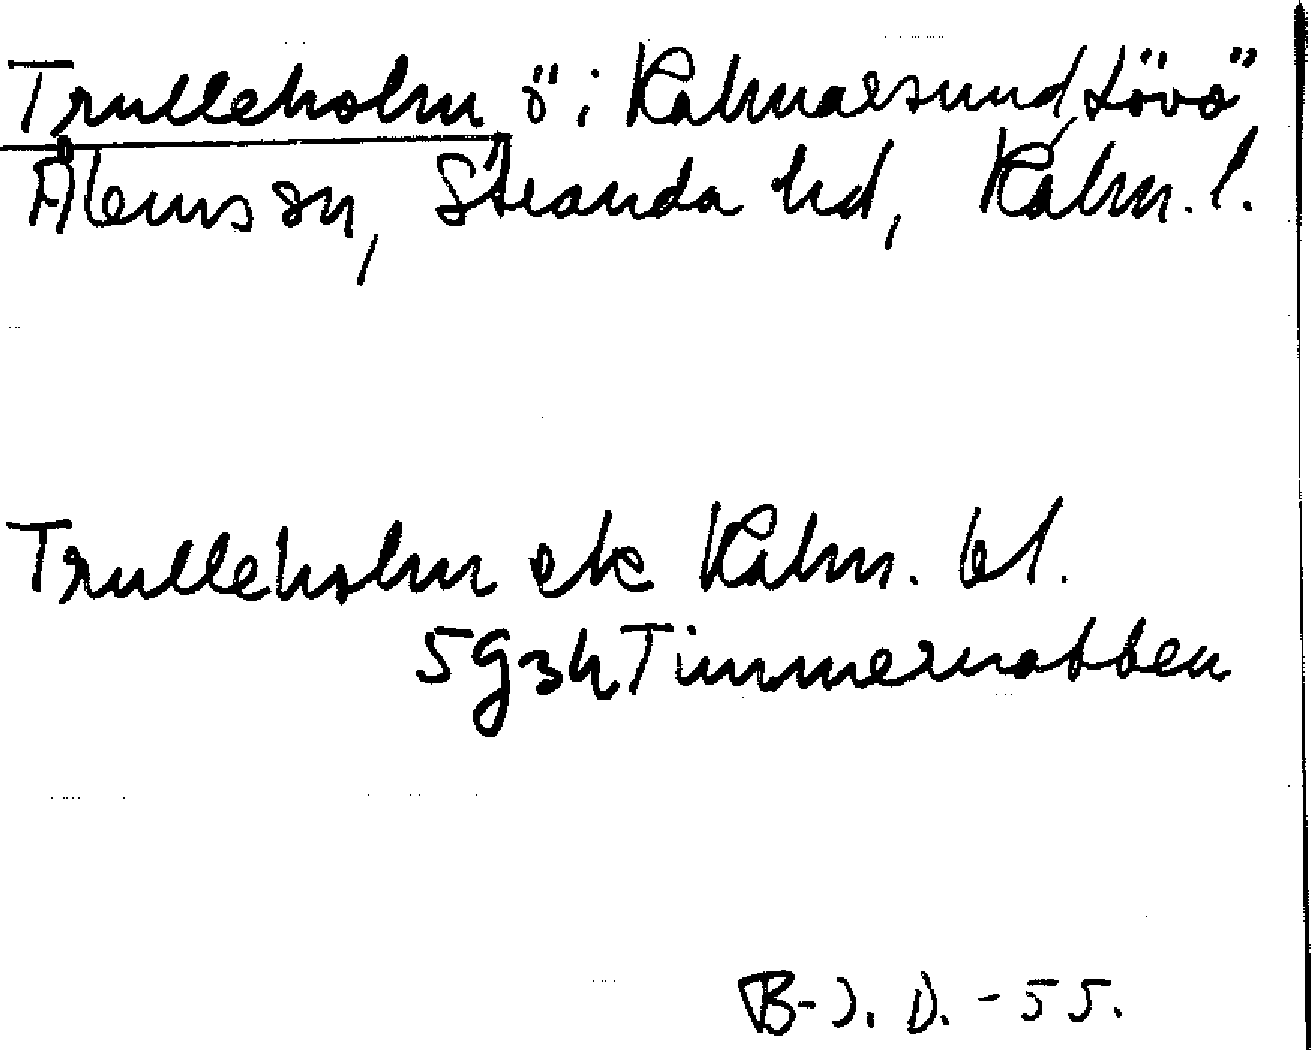 Trulleholm ö i Kalmarsund, Lövö
Ålems sn, Stranda hd, Kalm. l.
Trulleholm ek Kalm. bl.
5g3h Timmernabben
B-J. D. -55.